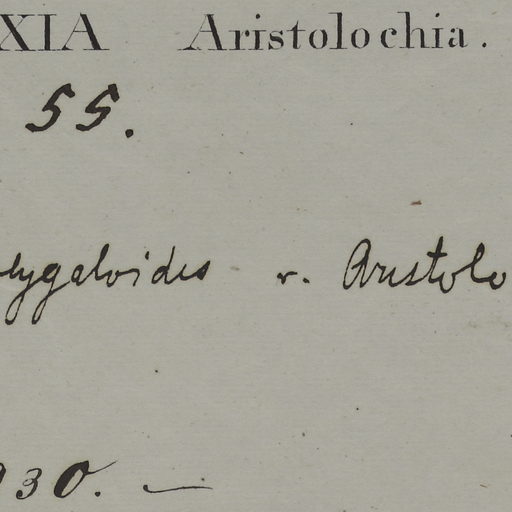 XIA Aristolochia.
55.
olygaloides v. Aristolo
930. —